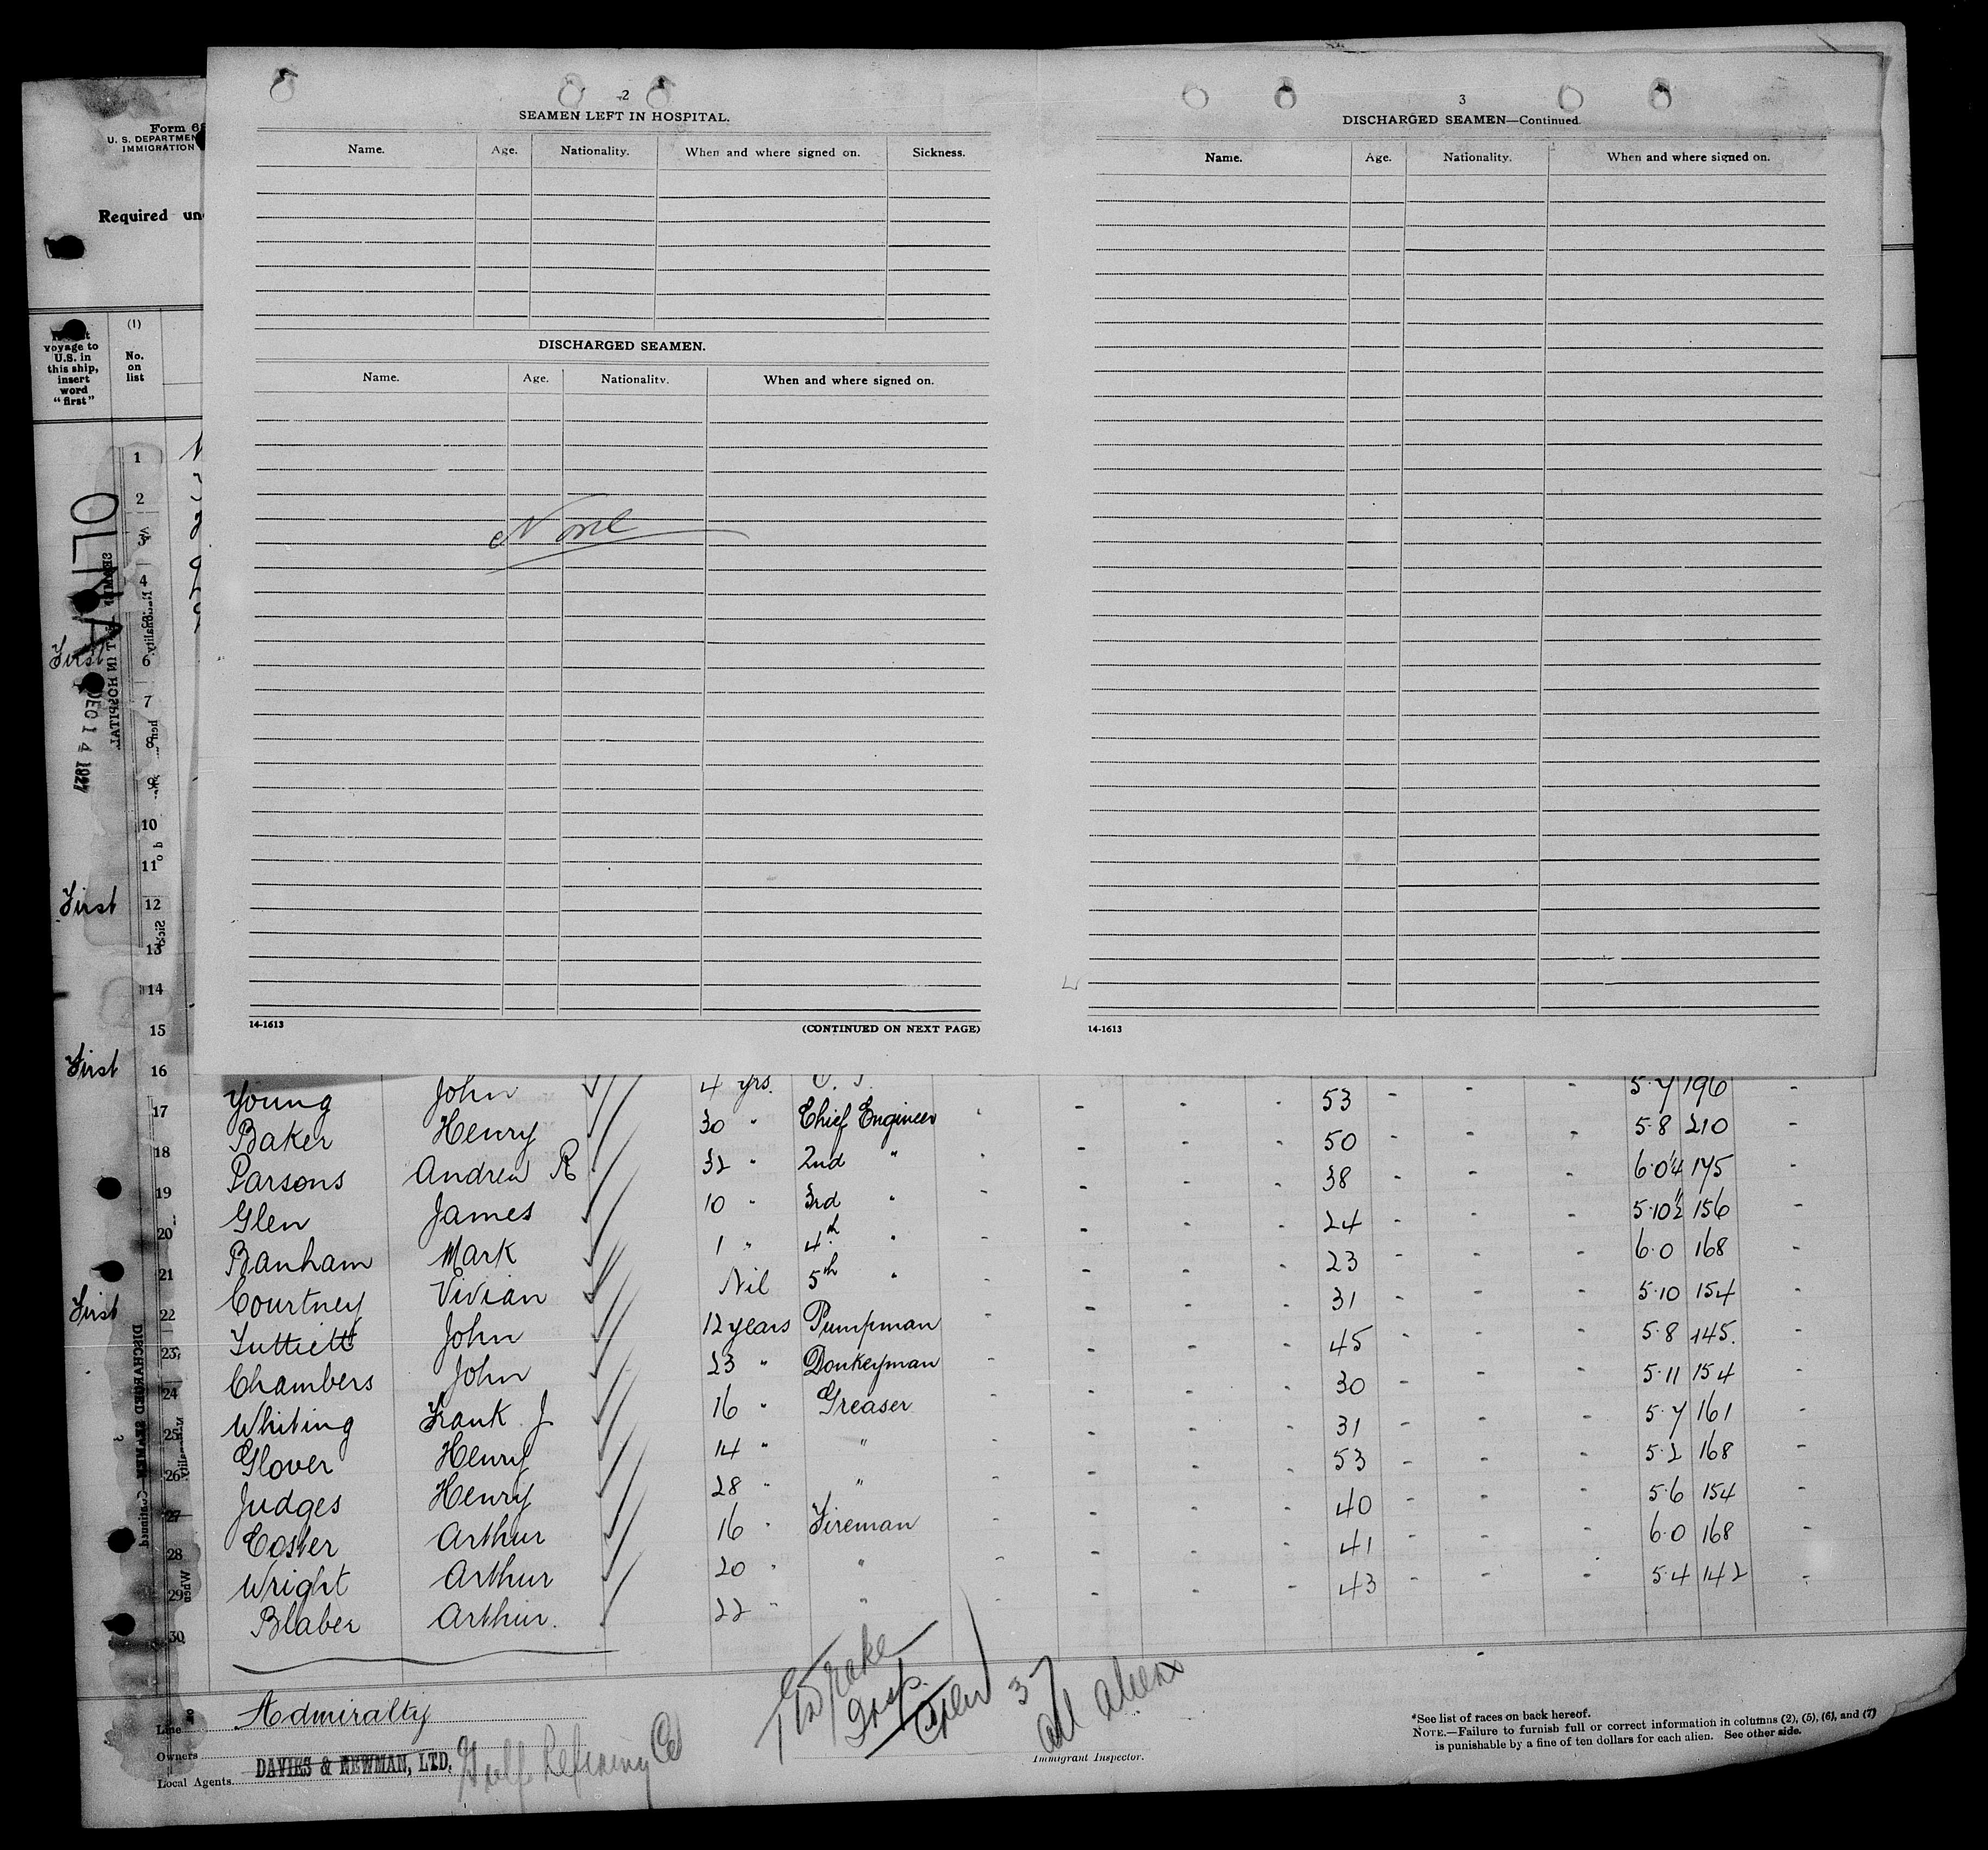 2
SEAMEN LEFT IN HOSPITAL.
Name. Age. Nationality. When and where signed on. Sickness.
DISCHARGED SEAMEN.
Name. Age. Nationality. When and where signed on.
None
14-1613 (CONTINUED ON NEXT PAGE)
3
DISCHARGED SEAMEN—Continued.
Name. Age. Nationality. When and where signed on.
14-1613
Form 6
U. S. DEPARTMEN
IMMIGRATION
Required un
voyage to
U.S. in
this ship,
insert
word
"first"
(1)
No.
on
list
1
2
3
4
First 6
7
8
9
10
11
First 12
13
14
15
First 16
DEC 14 1927
Young John 4 yrs. 53 - - - 5.7 196 -
17 Baker Henry 30 " Chief Engineer - - - - 50 - - - 5.8 210 -
18 Parsons Andrew R 32 " 2nd " - - - - 38 - - - 6.0¼ 175 -
19 Glen James 10 " 3rd " - - - - 24 - - - 5.10½ 156 -
20 Banham Mark 1 " 4th " - - - - 23 - - - 6.0 168 -
21 Courtney Vivian Nil 5th " - - - - 31 - - - 5.10 154 -
First 22 John 12 years Pumpman - - - - 45 - - - 5.8 145. -
23 Chambers John 23 " Donkeyman - - - - 30 - - - 5.11 154 -
24 Whiting Frank J 16 " Greaser - - - - 31 - - - 5.7 161 -
25 Glover Henry 14 " " - - - - 53 - - - 5.2 168 -
26 Judges Henry 28 " " - - - - 40 - - - 5.6 154 -
27 Coster Arthur 16 " Fireman - - - - 41 - - - 6.0 168 -
28 Wright Arthur 20 " " - - - - 43 - - - 5.4 142 -
29 Blaber Arthur. 22 " "
30
Line Admiralty
Owners
Local Agents DAVIES & NEWMAN, LTD. Gulf Refining Co
Drake
Insp.
Crew 37
all aliens
Immigrant Inspector.
*See list of races on back hereof.
NOTE.—Failure to furnish full or correct information in columns (2), (5), (6), and (7)
is punishable by a fine of ten dollars for each alien. See other side.